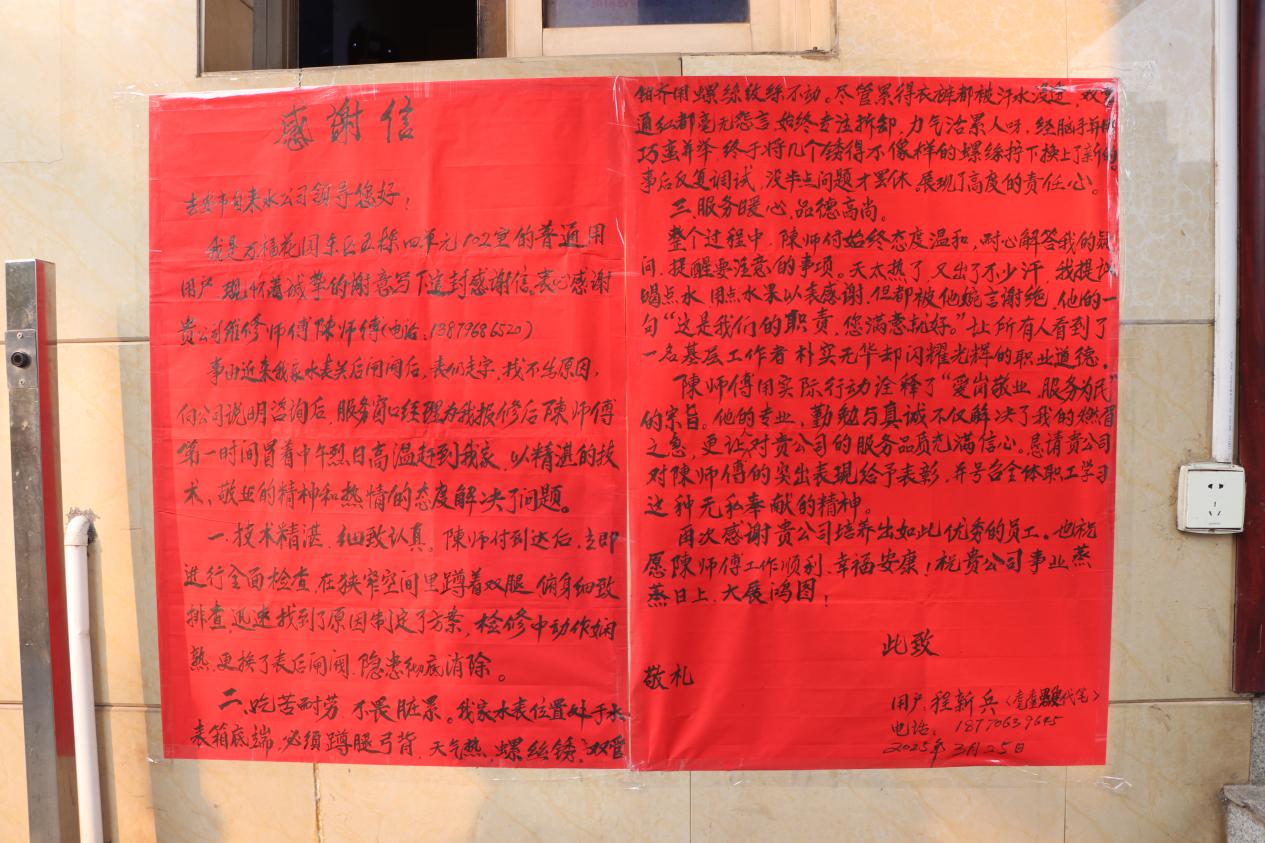 感謝信
吉安市自来水公司领导您好！
我是万福花园东区五栋四单元102室的普通用
用户，现怀着诚挚的谢意写下这封感谢信，衷心感谢
贵公司维修师傅陳师傅（电话：13879686520）
事由近来我家水表关后闸阀后，表仍走字，找不出原因，
向公司说明咨询后，服务窗口经理为我报修后陳师傅
第一时间冒着中午烈日高温赶到我家，以精湛的技
术、敬业的精神和热情的态度解决了问题。
一、技术精湛，细致认真，陳师付到达后，立即
进行全面检查，在狭窄空间里蹲着双腿，俯身细致
排查，迅速找到了原因制定了方案，检修中动作娴
熟，更换了表后闸阀，隐患彻底消除。
二、吃苦耐劳，不畏脏累。我家水表位置处于水
表箱底端，必须蹲腿弓背，天气热，螺丝锈，双管
钳齐用螺絲纹絲不动。尽管累得衣裤都被汗水浸透，双
通私都毫无怨言，始终专注拆卸，力气活累人呀，经脑手并用
巧蛮并举，终于将几个锈得不像样的螺絲拧下换上了新的
事后反复调试，没半点问题才罢休，展现了高度的责任心。
三、服务暖心，品德高尚。
整个过程中，陳师付始终态度温和，耐心解答我的疑
问，提醒要注意的事项。天太热了，又出了不少汗，我提议
喝点水，用点水果以表感谢，但都被他婉言谢绝，他的一
句“这是我们的职责，您满意就好。”让所有人看到了
一名基层工作者朴实无华却闪耀光辉的职业道德。
陳师傅用实际行动诠释了“爱岗敬业，服务为民”
的宗旨。他的专业，勤勉与真诚不仅解决了我的燃眉
之急，更让对贵公司的服务品质充满信心。恳请贵公司
对陳师傅的突出表现给予表彰，并号召全体职工学习
这种无私奉献的精神。
再次感谢贵公司培养出如此优秀的员工。也祝
愿陳师傅工作顺利，幸福安康！祝贵公司事业蒸
蒸日上，大展鸿图！
此致
敬礼
用户：程新兵（代笔）
电话：18770639645
2025年3月25日